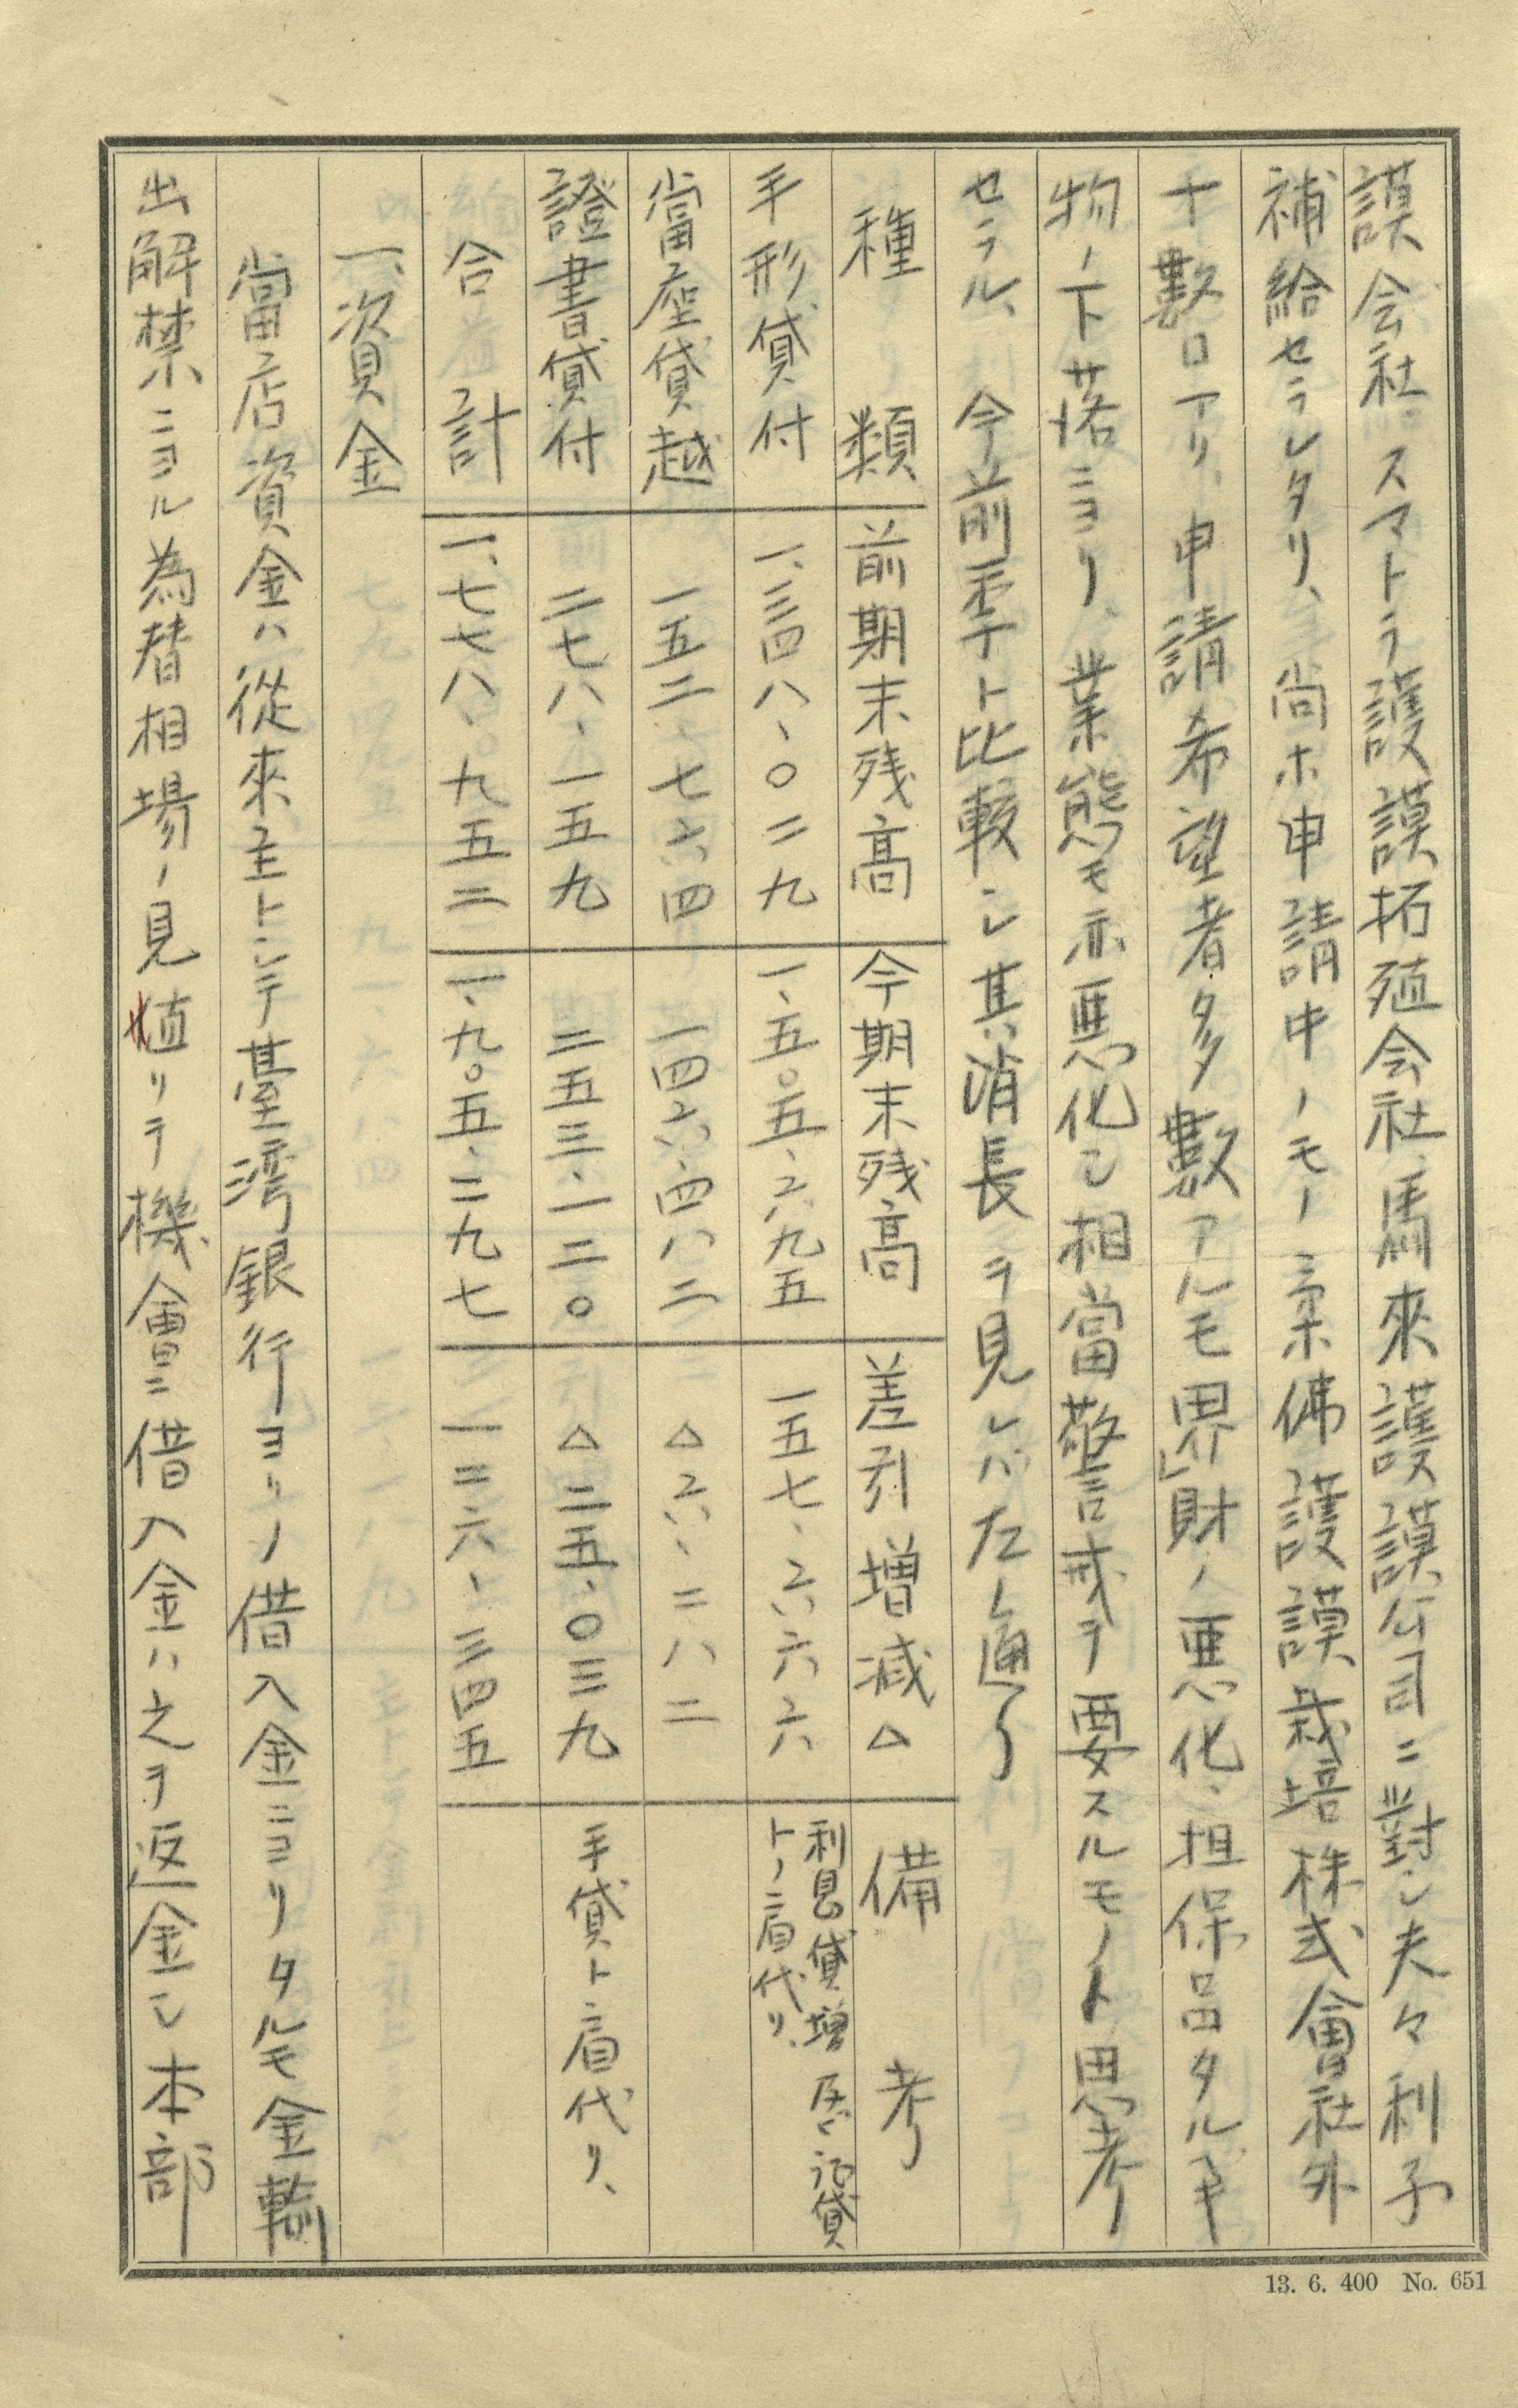 謨会社、スマトラ護謨拓殖会社、馬來護謨公司ニ對シ夫々利子
補給セラレタリ、尚ホ申請中ノモノニ柔佛護謨栽培株式會社外
十數口アリ、申請希望者多數アルモ界財ノ悪化、担保品タルゴム
物ノ下落ニヨリ、業態モ亦悪化シ相當警戒ヲ要スルモノト思考
セラル、今前季ト比較シ其消長ヲ見レバ左ノ通リ
種類 前期末残高 今期末残高 差引増減△ 備考
手形貸付 一、三四八、〇二九 一、五〇五、六九五 一五七、六六六 利息貸増居証貸トノ肩代リ、
當座貸越 一五二、七六四 一四六、四八二 △六、二八二
證書貸付 二七八、一五九 二五三、一二〇 △二五、〇三九 手貸ト肩代リ、
合計 一、七七八、九五二 一、九〇五、二九七 一二六、三四五
一、資金
當店資金ハ從來主トシテ臺湾銀行ヨリノ借入金ニヨリタルモ金輸
出解禁ニヨル為替相場ノ見値リテ機會ニ借入金ハ之ヲ返金シ本部
13. 6. 400 No. 651